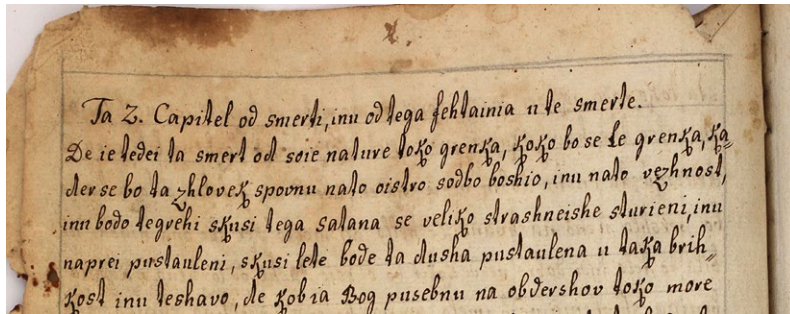 Ta 2. Capitel od smerti, inu od tega fehtainia u te smerte.
De ie tedei ta smert od soie nature toko grenka, koko bo se le grenka, ka„
der se bo ta zhlovek spovnu na to oistro sodbo boshio, inu na to vezhnost,
inu bodo te grehi skusi tega Satana se veliko strashneishe sturieni, inu
naprei pustauleni, skusi lete bode ta dusha pustaulena u taka brih„
kost inu teshavo, de kobia Bog pusebnu na obdershov toko more